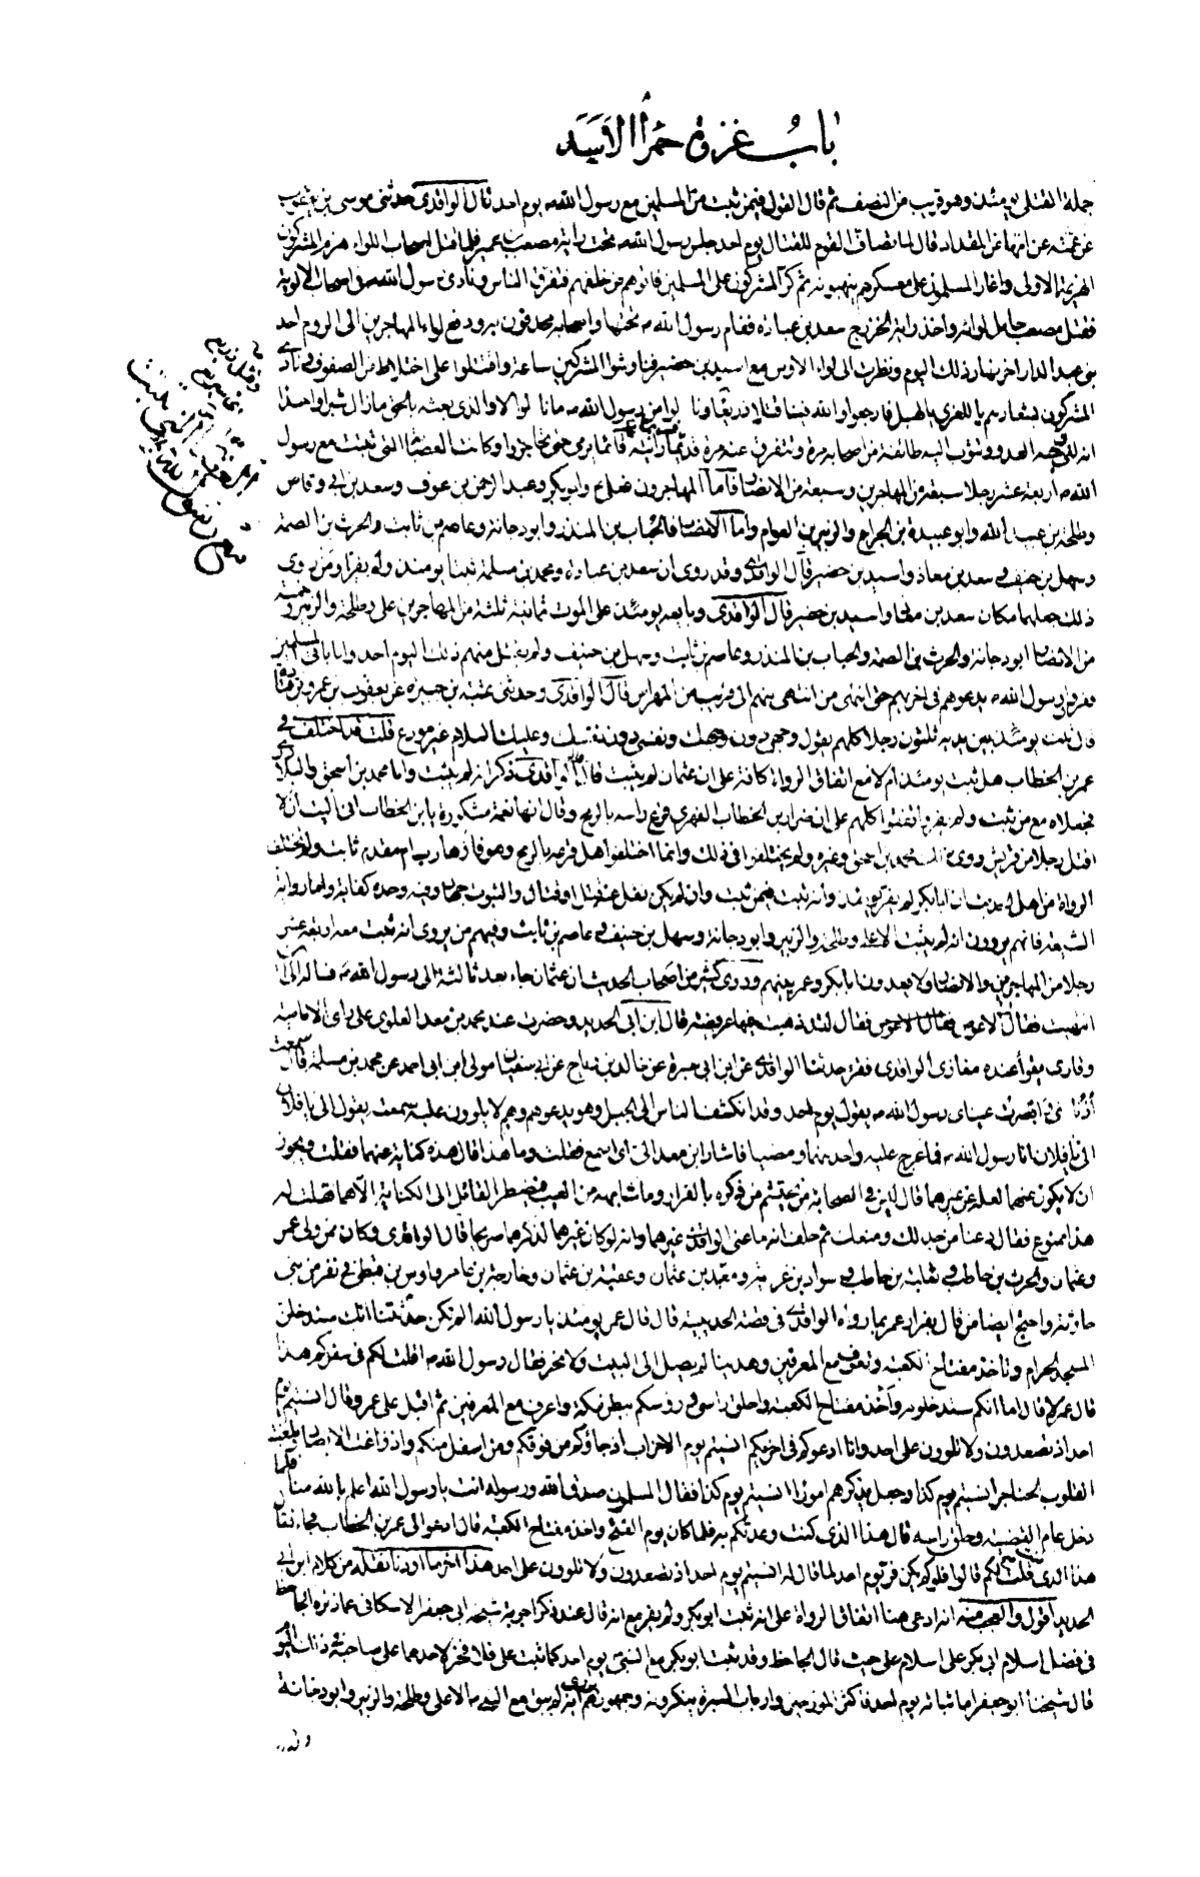 باب غزوة حمراء الاسد
جملة القتلى يومئذ وهو قريب من النصف ثم قال القول فيمن ثبت من المسلمين مع رسول الله ص يوم احد قال الواقدى حدثنى موسى بن يعقوب
عن عمته عن امها عن المقداد قال لما تصاف القوم للقتال يوم احد جلس رسول الله ص تحت راية مصعب بن عمير فلما قتل اصحاب اللواء هزم المشركون
الهزيمة الاولى واغار المسلمون على معسكرهم ينهبونه ثم كر المشركون على المسلمين فاتوهم من خلفهم فتفرق الناس ونادى رسول الله ص فى اصحاب الالوية
فقتل مصعب حامل لوائه واخذ راية الخزرج سعد بن عبادة فقام رسول الله ص تحتها واصحابه محدقون به ودفع لواء المهاجرين الى الروم احد
بنى عبد الدار اخر نهار ذلك اليوم ونظرت الى لواء الاوس مع اسيد بن حضير فناوشوا المشركين ساعة واقتتلوا على اختلاط من الصفوف ونادى
المشركون بشعارهم يا للعزى يا لهبل فارجعوا والله فينا قتلا ذريعا ونالوا من رسول الله ص ما نالوا لا والذى بعثه بالحق ما زال شبرا واحدا
انه لفى وجه العدو وتثوب اليه طائفة من اصحابه مرة وتتفرق عنه مرة فربما رايته قائما يرمى حتى تحاجزوا وكانت العصابة التى ثبتت مع رسول
الله ص اربعة عشر رجلا سبعة من المهاجرين وسبعة من الانصار فاما المهاجرون فعلى ع وابو بكر وعبد الرحمن بن عوف وسعد بن ابى وقاص
وطلحة بن عبيد الله وابو عبيدة بن الجراح والزبير بن العوام واما الانصار فالحباب بن المنذر وابو دجانة وعاصم بن ثابت والحرث بن الصمة
وسهل بن حنيف وسعد بن معاذ واسيد بن حضير قال الواقدى وقد روى ان سعد بن عبادة ومحمد بن مسلمة ثبتا يومئذ ولم يفرا ومن روى
ذلك جعلهما مكان سعد بن معاذ واسيد بن حضير قال الواقدى وبايعه يومئذ على الموت ثمانية ثلثة من المهاجرين على وطلحة والزبير وخمسة
من الانصار ابو دجانة والحرث بن الصمة والحباب بن المنذر وعاصم بن ثابت وسهل بن حنيف ولم يقتل منهم ذلك اليوم احد واما باقى المسلمين
ففروا ورسول الله ص يدعوهم فى اخريهم حتى انتهى من انتهى منهم الى قريب من المهراس قال الواقدى وحدثنى عتبة بن جبيرة عن يعقوب بن عمرو بن قتادة
قال ثبت يومئذ بين يديه ثلثون رجلا كلهم يقول وجهى دون وجهك ونفسى دون نفسك وعليك السلام غير مودع قلت قد اختلف فى
عمر بن الخطاب هل ثبت يومئذ ام لا مع اتفاق الرواة كافة على ان عثمان لم يثبت فالواقدى ذكر انه لم يثبت واما محمد بن اسحق والبلاذرى
فجعلاه مع من ثبت ولم يفر واتفقوا كلهم على ان ضرار بن الخطاب الفهرى قرع راسه بالرمح وقال انها نعمة مشكورة يا بن الخطاب انى اليت ان لا
اقتل رجلا من قريش وروى ذلك محمد بن اسحق وغيره ولم يختلفوا فى ذلك وانما اختلفوا هل قرعه بالرمح وهو فار هارب ام مقدم ثابت ولم يختلف
الرواة من اهل الحديث ان ابا بكر لم يفر يومئذ وانه ثبت فيمن ثبت وان لم يكن نقل عنه قتل او قتال والثبوت جهاد وفيه وحده كفاية واما رواة
الشيعة فانهم يروون انه لم يثبت الا على وطلحة والزبير وابو دجانة وسهل بن حنيف وعاصم بن ثابت وفيهم من يروى انه ثبت معه اربعة عشر
رجلا من المهاجرين والانصار ولا يعدون ابا بكر وعمر بينهم وروى كثير من اصحاب الحديث ان عثمان جاء بعد ثالثة الى رسول الله ص فساله الى اين
انتهيت فقال الى الاعوص فقال لقد ذهبت فيها عريضة قال ابن ابى الحديد وحضرت عند محمد بن معد العلوى على راى الامامية
وقارى يقرأ عنده مغازى الواقدى فقرأ حدثنا الواقدى عن ابن ابى سبرة عن خالد بن رياح عن ابى سفيان مولى ابن ابى احمد عن محمد بن مسلمة قال سمعت
أذناى وابصرت عيناى رسول الله ص يقول يوم احد وقد انكشف الناس الى الجبل وهو يدعوهم وهم لا يلوون عليه سمعته يقول الى يا فلان
الى يا فلان انا رسول الله ص فما عرج عليه واحد منهما ومضيا فاشار ابن معد الى اى اسمع فقلت وما هذا قال هذه كناية عنهما فقلت ويجوز
ان لا يكون عنهما لعله عن غيرهما قال ليس فى الصحابة من يحتشم من ذكره بالفرار وما شابهه من العيب فيضطر القائل الى الكناية الا هما قلت له
هذا ممنوع فقال دعنا من جدلك ومنعك ثم حلف انه ما عنى الواقدى غيرهما وانه لو كان غيرهما لذكرهما صريحا قال الواقدى وكان ممن ولى عمر
وعثمان والحرث بن حاطب وثعلبة بن حاطب وسواد بن غزية وسعد بن عثمان وعقبة بن عثمان وخارجة بن عامر واوس بن قيظى فى نفر من بنى
حارثة واحتج ايضا من قال بفرار عمر بما رواه الواقدى فى قصة الحديبية قال قال عمر يومئذ يا رسول الله الم تكن حدثتنا انك ستدخل
المسجد الحرام وتاخذ مفتاح الكعبة وتعرف مع المعرفين وهدينا لم يصل الى البيت ولا نحر فقال رسول الله ص اقلت لكم فى سفركم هذا
قال عمر لا قال اما انكم ستدخلونه وآخذ مفتاح الكعبة واحلق راسى ورؤسكم ببطن مكة واعرف مع المعرفين ثم اقبل على عمر وقال انسيتم يوم
احد اذ تصعدون ولا تلوون على احد وانا ادعوكم فى اخريكم انسيتم يوم الاحزاب اذ جاؤكم من فوقكم ومن اسفل منكم واذ زاغت الابصار وبلغت
القلوب الحناجر انسيتم يوم كذا وجعل يذكرهم امورا انسيتم يوم كذا فقال المسلمون صدق الله ورسوله انت يا رسول الله اعلم بالله منا فلما
دخل عام القضية وحلق راسه قال هذا الذى كنت وعدتكم به فلما كان يوم الفتح واخذ مفتاح الكعبة قال ادعوا الى عمر بن الخطاب فجاء فقال
هذا الذى قلت لكم قالوا فلو لم يكن فر يوم احد لما قال له انسيتم يوم احد اذ تصعدون ولا تلوون على احد هذا آخر ما اردنا نقله من كلام ابن ابى
الحديد اقول والعجب منه انه ادعى هنا اتفاق الرواة على انه ثبت ابو بكر ولم يفر مع انه قال عند ذكر اجوبة شيخه ابى جعفر الاسكافى عما ذكره الجاحظ
فى فضل اسلام ابى بكر على اسلام على حيث قال الجاحظ وقد ثبت ابو بكر مع النبى يوم احد كما ثبت على فلا فخر لاحدهما على صاحبه فى ذلك اليوم
قال شيخنا ابو جعفر اما ثباته يوم احد فاكثر المورخين وارباب السيرة ينكرونه وجمهورهم يروى انه لم يبق مع النبى ص الا على وطلحة والزبير وابو دجانة